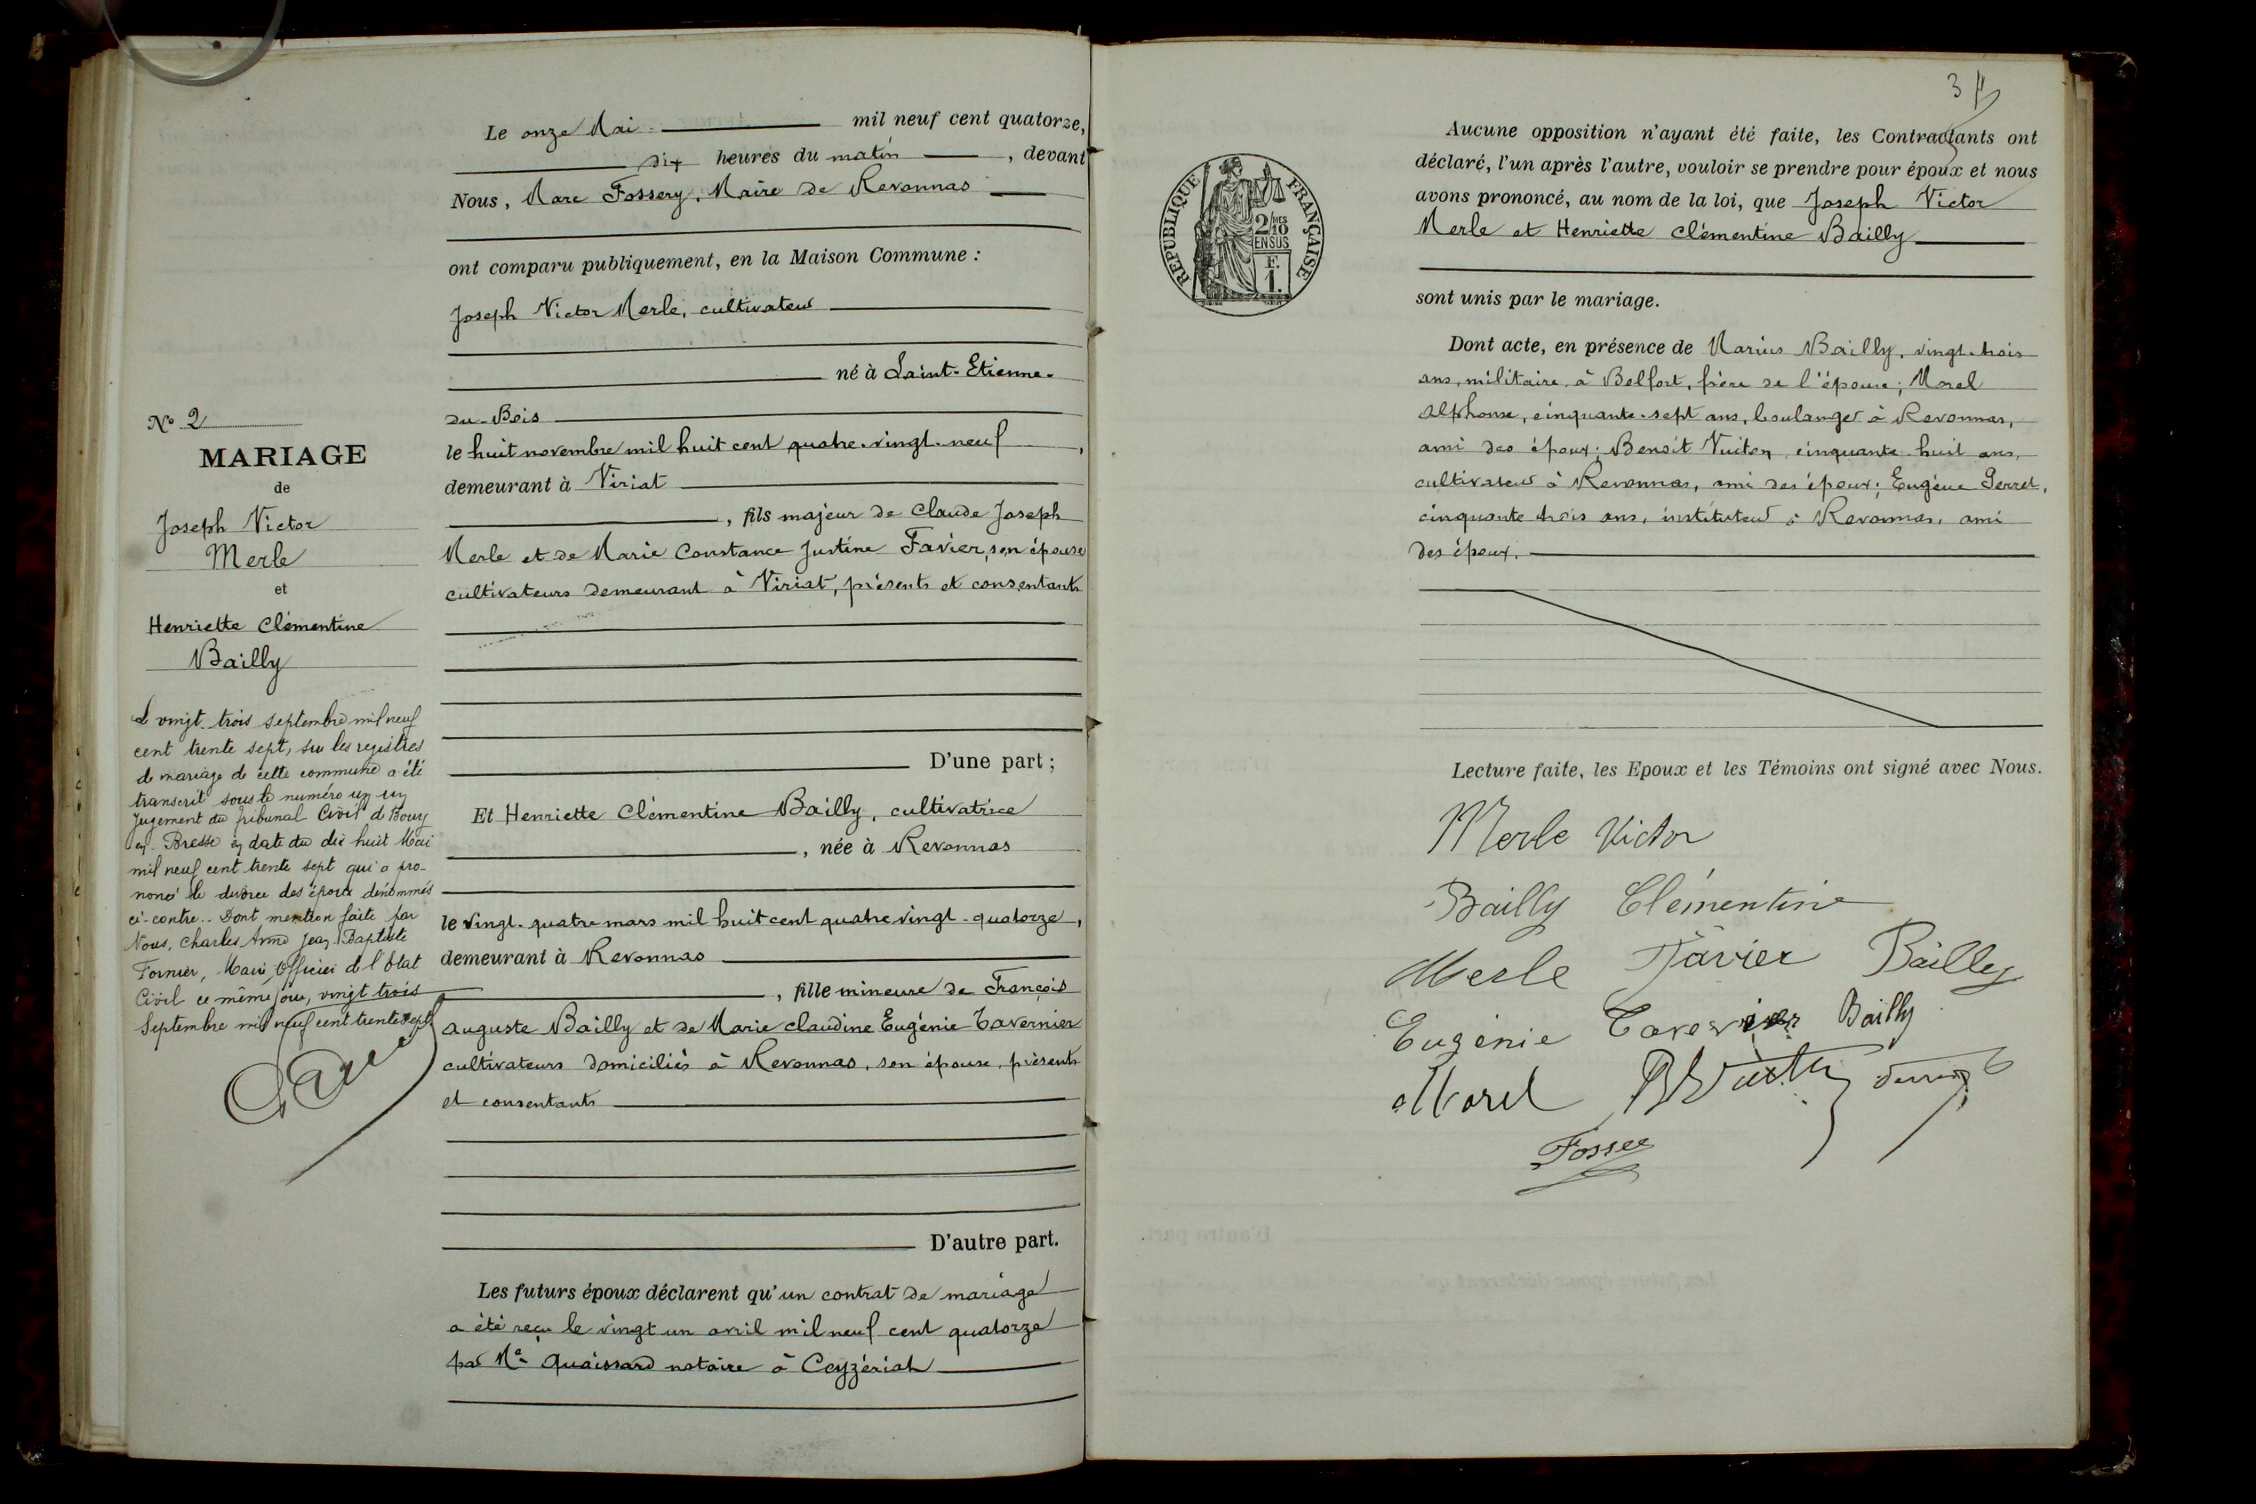 Nº 2
MARIAGE
de
Joseph Victor
Merle
et
Henriette Clémentine
Bailly
Le vingt-trois septembre mil neuf
cent trente sept, sur les registres
de mariage de cette commune a été
transcrit sous le numéro un un
Jugement du tribunal Civil de Bourg
en Bresse en date du dix huit Mai
mil neuf cent trente sept qui a pro-
noncé le divorce des époux dénommés
ci-contre.. Dont mention faite par
Nous, Charles Jean Baptiste
Fornier, Maire, Officier de l'Etat
Civil ce même jour, vingt trois
Septembre mil neuf cent trente sept
Le onze Mai mil neuf cent quatorze,
dix heures du matin, devant
Nous, Marc Fossery, Maire de Revonnas
ont comparu publiquement, en la Maison Commune :
Joseph Victor Merle, cultivateur
né à Saint-Etienne-
du-Bois
le huit novembre mil huit cent quatre-vingt-neuf,
demeurant à Viriat
, fils majeur de Claude Joseph
Merle et de Marie Constance Justine Favier, son épouse
cultivateurs demeurant à Viriat, présents et consentants
D'une part ;
Et Henriette Clémentine Bailly, cultivatrice
, née à Revonnas
le vingt-quatre mars mil huit cent quatre vingt-quatorze,
demeurant à Revonnas
, fille mineure de François
Auguste Bailly et de Marie Claudine Eugénie Tavernier
cultivateurs domiciliés à Revonnas, son épouse, présents
et consentants
D'autre part.
Les futurs époux déclarent qu'un contrat de mariage
a été reçu le vingt un avril mil neuf cent quatorze
par Me Quaissard notaire à Ceyzériat
3
RÉPUBLIQUE FRANÇAISE
2/10 MES
EN SUS
F.
1.
Aucune opposition n'ayant été faite, les Contractants ont
déclaré, l'un après l'autre, vouloir se prendre pour époux et nous
avons prononcé, au nom de la loi, que Joseph Victor
Merle et Henriette Clémentine Bailly
sont unis par le mariage.
Dont acte, en présence de Marius Bailly, vingt-trois
ans, militaire à Belfort, frère de l'épouse; Morel
Alphonse, cinquante-sept ans, boulanger à Revonnas,
ami des époux; Benoît Vuiton, cinquante-huit ans,
cultivateur à Revonnas, ami des époux; Eugène Perret,
cinquante trois ans, instituteur à Revonnas, ami
des époux.
Lecture faite, les Epoux et les Témoins ont signé avec Nous.
Merle Victor
Bailly Clémentine
Merle Favier Bailly
Eugénie Tavernier Bailly
Morel